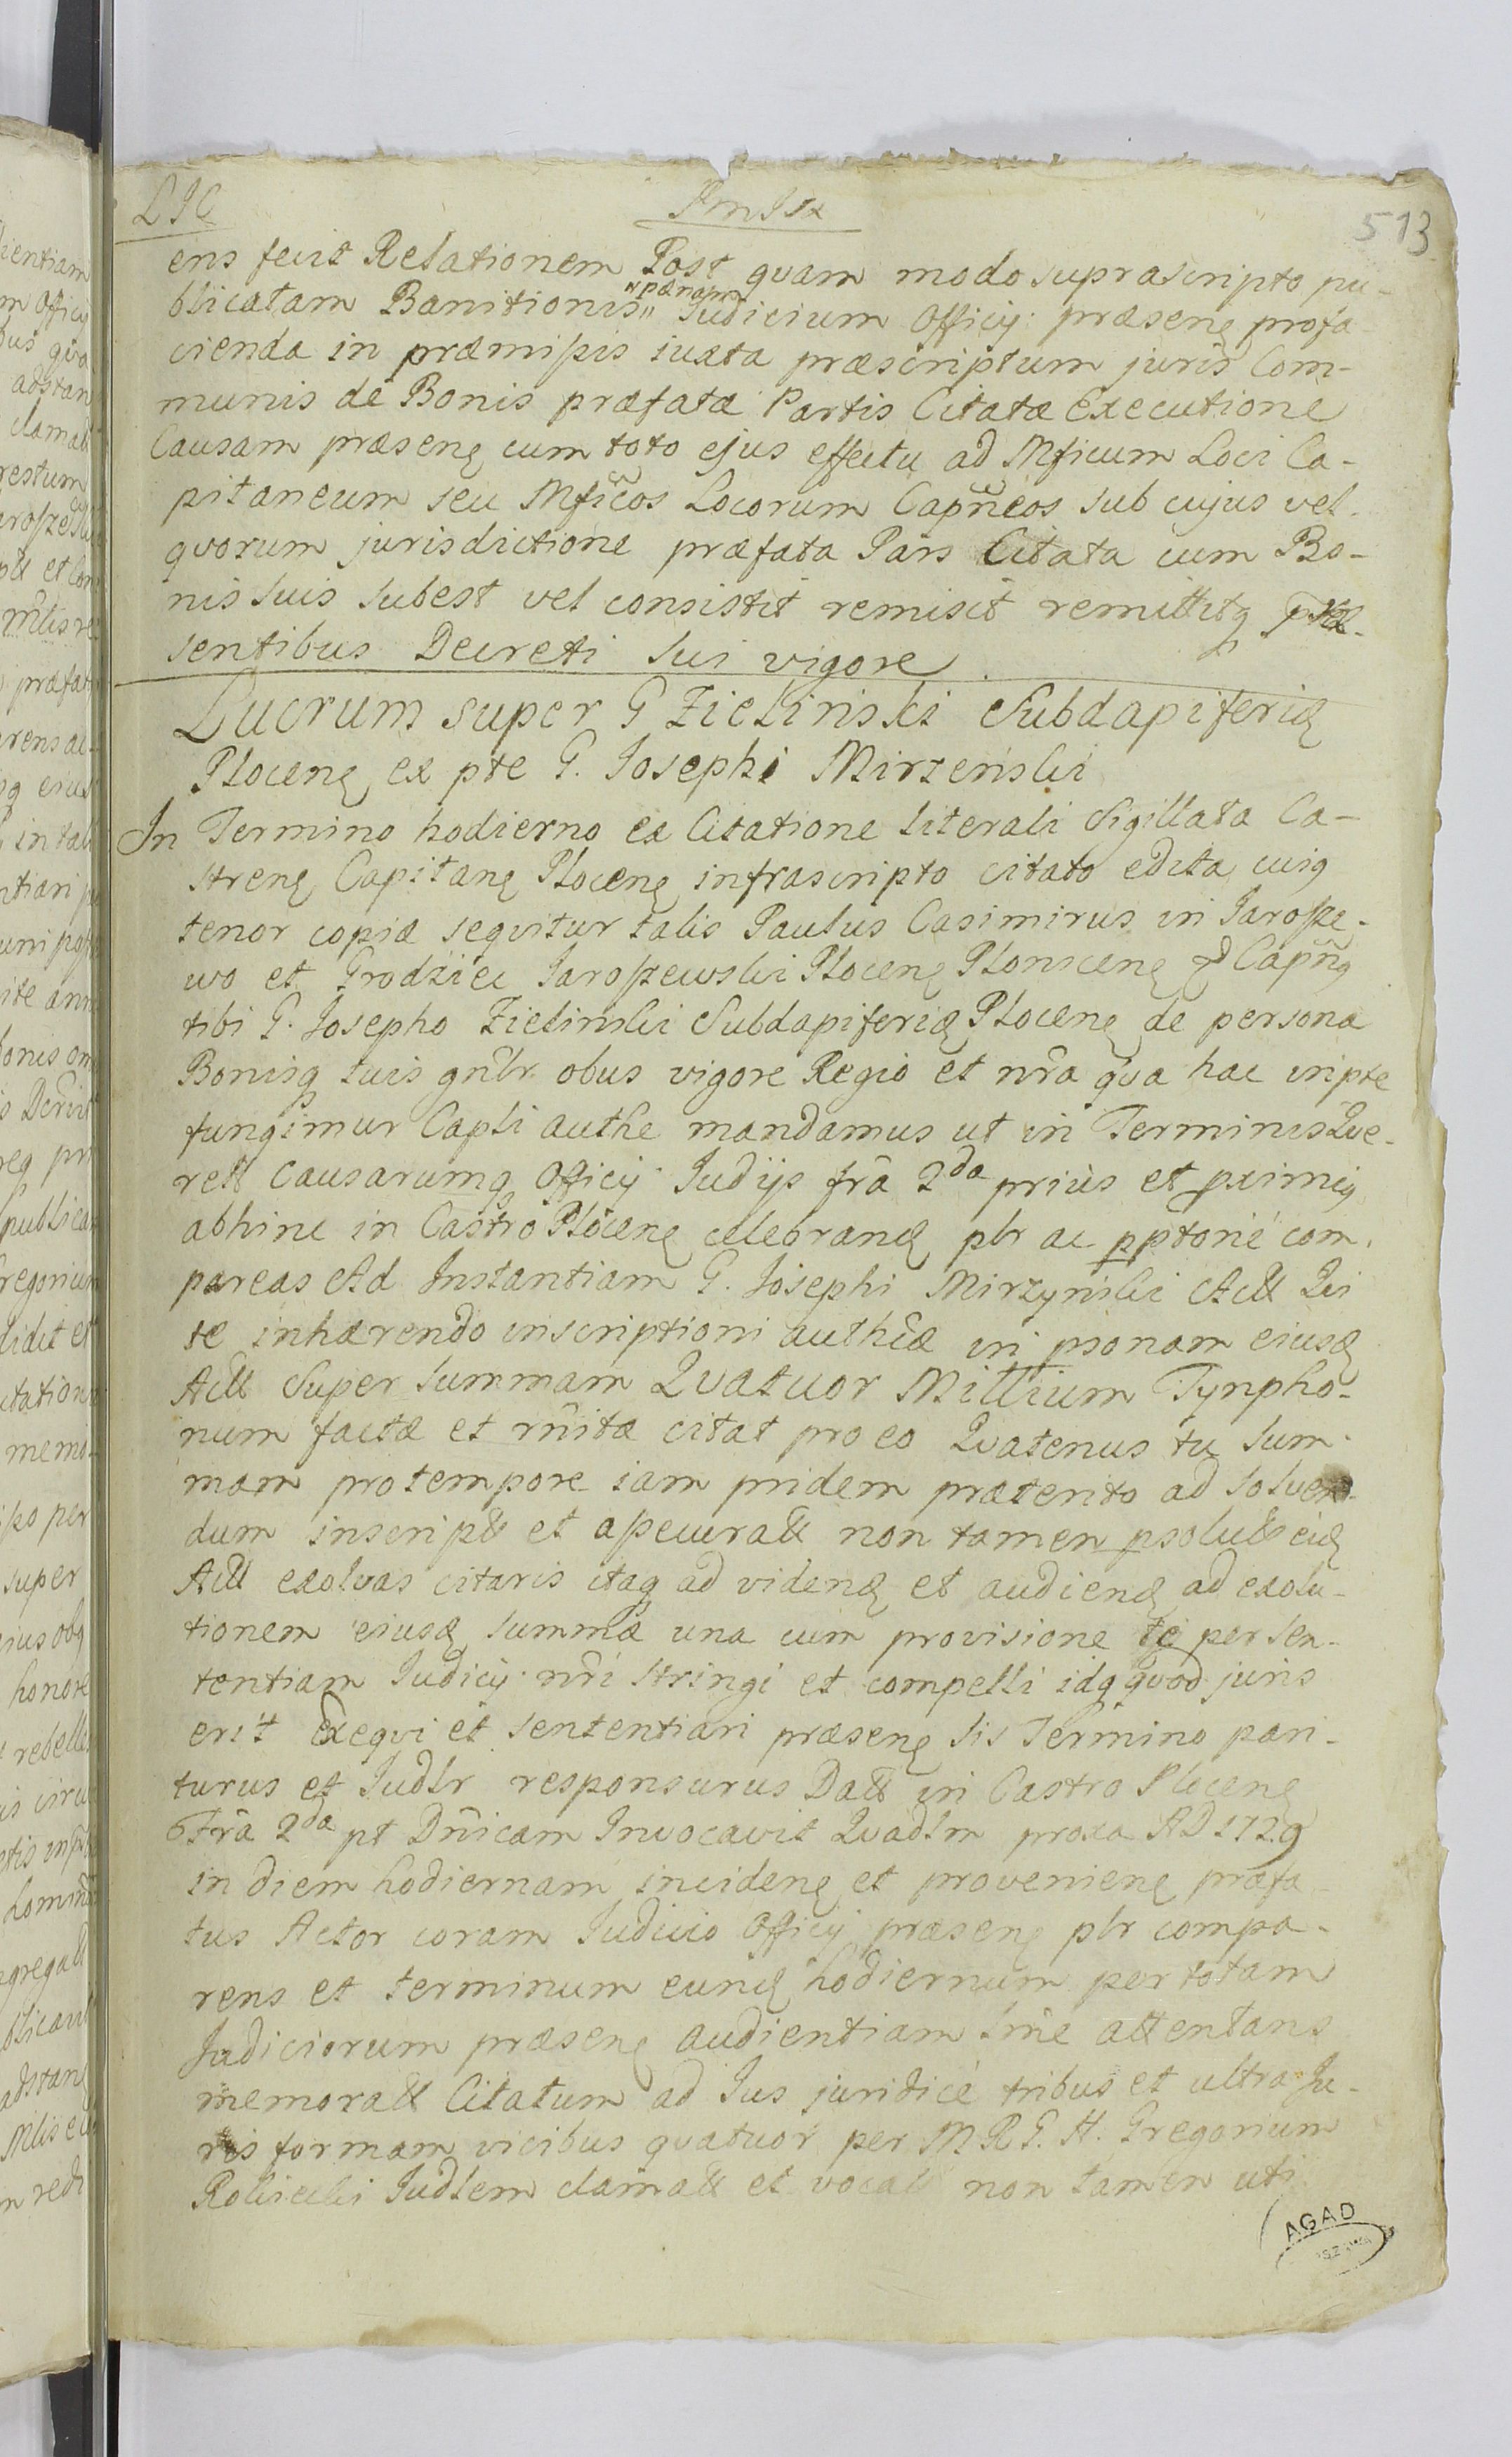 LIC
513
ens fecit Relationem Post quam modo suprascripto pu-
blicatam Banitionis "pænam" Judicium Officÿ præsenę profa-
cienda in præmißis iuxta præscriptum juris Com-
munis de Bonis præfatæ Partis Citatæ Executione
Causam præsenę cum toto ejus effectu ad Mficum Loci Ca-
pitaneum seu Mficos Locorum Capneos sub cujus vel
quorum jurisdictione præfata Pars Citata cum Bo-
nis suis subest vel consistit remisit remittitq præ-
sentibus Decreti sui vigore
Lucrum super G Zielinski Subdapiferię
Plocenę ex pte G. Josephi Mirzenski
In Termino hodierno ex Citatione literali Sigillata Ca-
strenę Capitanę Plocenę infrascripto citato edita cuiq
tenor copiæ sequitur talis Paulus Casimirus in Jaroße-
wo et Grodziec Jaroßewski Plocenę Plonscenę & Capnq
tibi G. Josepho Zielinski Subdapiferię Plocenę de persona
Bonisq tuis gnlr obus vigore Regio et nra qua hac in pte
fungimur Capli authe mandamus ut in Terminis Que-
rell Causarumq Officÿ Judÿs fra 2da prius et pximię
abhinc in Castro Plocenę celebrandę plr ac pptorie com
pareas Ad Instantiam G. Josephi Mirzynski Act Qui
te inhærendo inscriptioni authcæ in psonam eiusdę
Act Super Summam Quatuor Millium Tynpho-
num factæ et rnitæ citat pro eo Quatenus tu Sum-
mam pro tempore iam pridem præterito ad solven-
dum inscript et aßecurat non tamen psolut eid
Act exolvas citaris itaq ad videnđ et audienđ ad exolu-
tionem eiusđ summæ una cum provisione te per sen-
tentiam Judicÿ nri stringi et compelli idq quod juris
erit exequi et sententiari præsenę sis Termino pari-
turus et Judlr responsurus Dat in Castro Plocenę
Fra 2da pt Dnicam Invocavit Quadlm proxa AD 1729
in diem hodiernam incidenę et provenienę præfa-
tus Actor coram Judicio Officÿ præsenę plr compa-
rens et terminum eunđ hodiernum per totam
Judiciorum præsenę audientiam sine attentans
memorat Citatum ad Jus juridicé tribus et ultra Ju-
ris formam vicibus quatuor per M R G. H. Gregorium
Rolicki Judlem clamat et vocat non tamen uti
AGAD